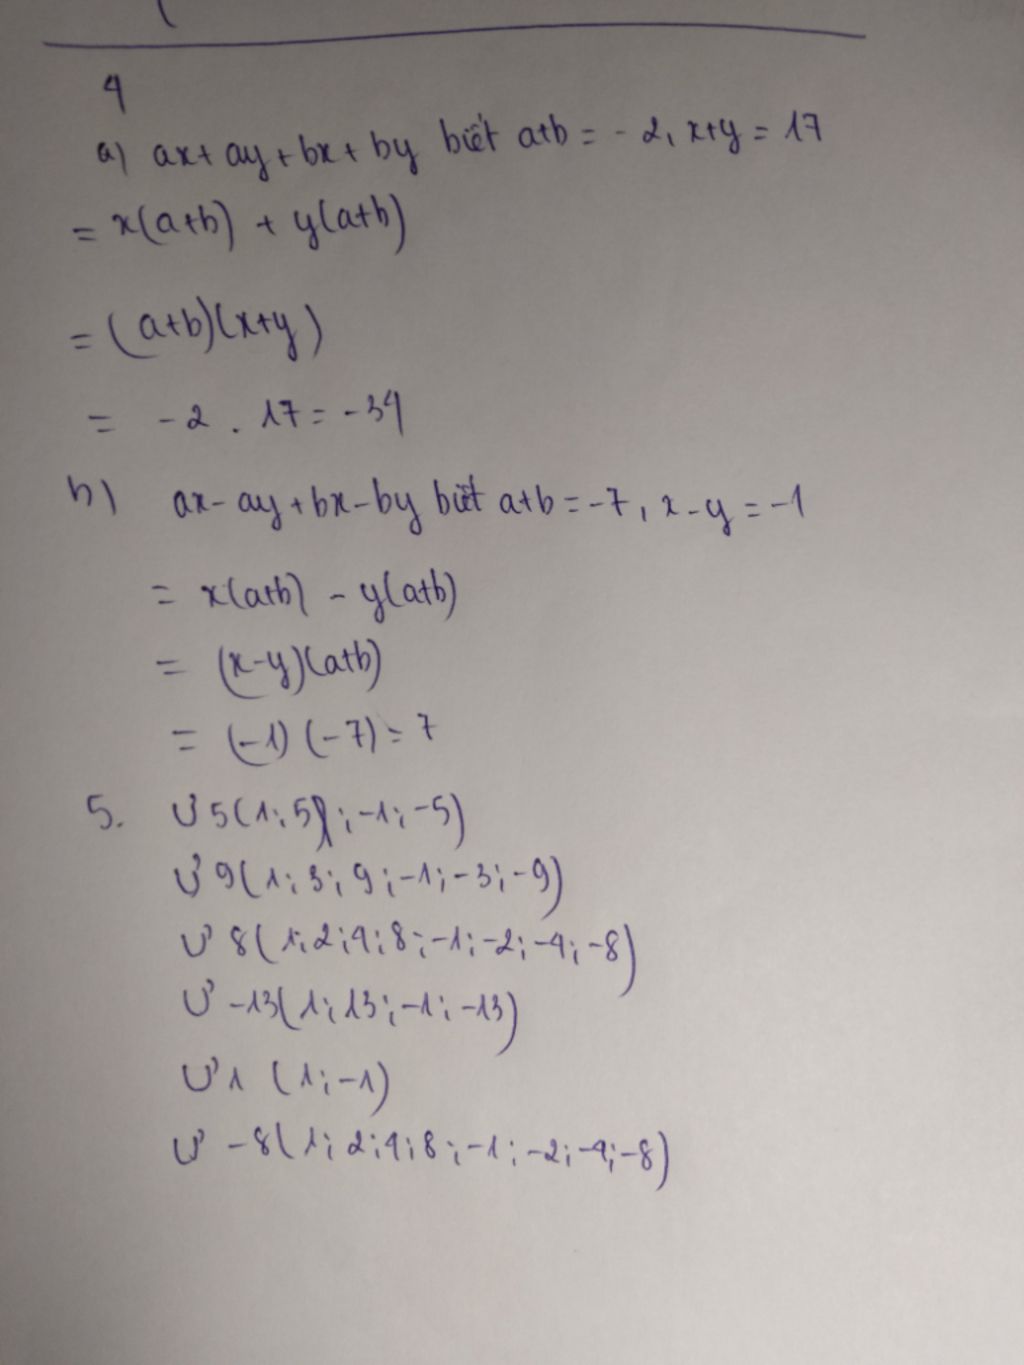 4
a) ax + ay + bx + by biết a+b = -2, x+y = 17
= x(a+b) + y(a+b)
= (a+b)(x+y)
= -2 . 17 = -34
b) ax - ay + bx - by biết a+b = -7, x-y = -1
= x(a+b) - y(a+b)
= (x-y)(a+b)
= (-1) (-7) = 7
5. Ư 5(1; 5); -1; -5)
Ư 9(1; 3; 9; -1; -3; -9)
Ư 8(1; 2; 4; 8; -1; -2; -4; -8)
Ư -13(1; 13; -1; -13)
Ư 1 (1; -1)
Ư -8(1; 2; 4; 8; -1; -2; -4; -8)